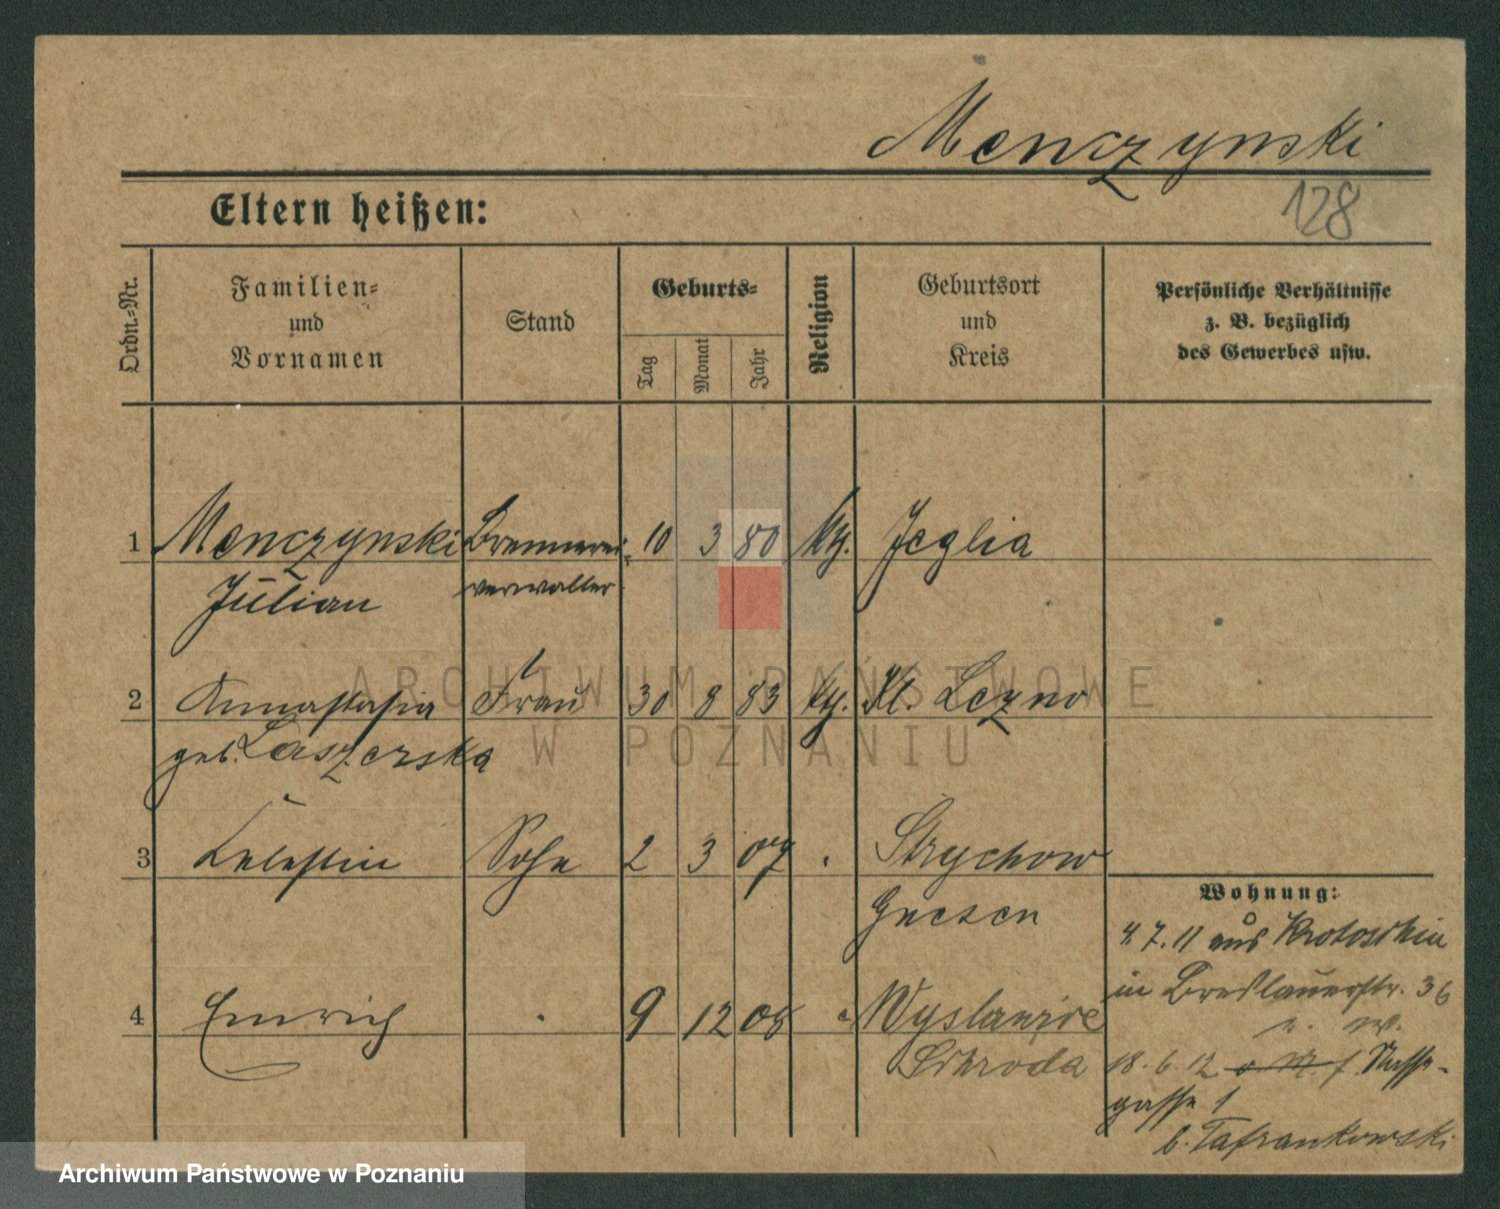 Menczynski
128
Eltern heißen:
Ordn.-Nr.
Familien-
und
Vornamen
Stand
Geburts-
Tag
Monat
Jahr
Religion
Geburtsort
und
Kreis
Persönliche Verhältnisse
z. B. bezüglich
des Gewerbes usw.
1 Menczynski Brennerei- 10 3 80 kth. Jeglia
Julian verwalter
2 Annastasia Frau 30 8 83 kth. Kl. Lezno
geb. Laszerska
3 Celestin Sohn 2 3 07 Strychowo
Gnesen
4 Emrich 9 12 08
Schroda
Wohnung:
4.7.11 aus Krotoschin
in Breslauerstr. 36
18.6.12 Nasse-
gasse 1
b. Tafrankowski
ARCHIWUM PAŃSTWOWE
W POZNANIU
Archiwum Państwowe w Poznaniu